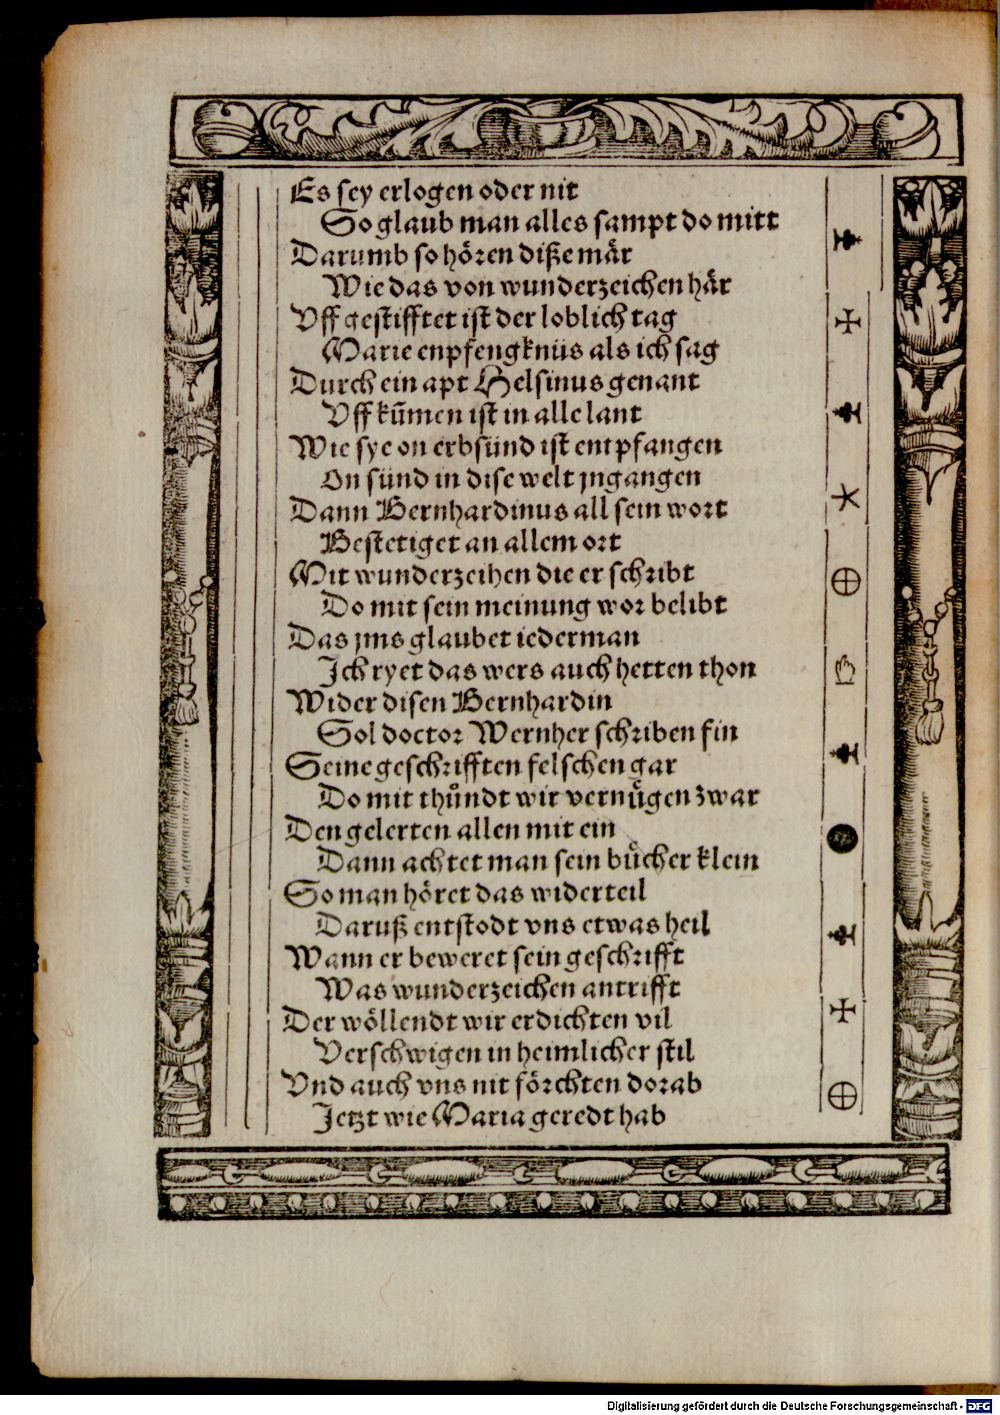 Es sey erlogen oder nit
So glaub man alles sampt do mitt
Darumb so hören diße mär
Wie das von wunderzeichen här
Vff gestifftet ist der loblich tag
Marie enpfengknüs als ich sag
Durch ein apt Helsinus genant
Vff kūmen ist in alle lant
Wie sye on erbsünd ist entpfangen
On sünd in dise welt jngangen
Dann Bernhardinus all sein wort
Bestetiget an allem ort
Mit wunderzeihen die er schribt
Do mit sein meinung wor belibt
Das jms glaubet iederman
Ich ryet das wers auch hetten thon
Wider disen Bernhardin
Sol doctor Wernher schriben fin
Seine geschrifften felschen gar
Do mit thůndt wir vernůgen zwar
Den gelerten allen mit ein
Dann achtet man sein bücher klein
So man höret das widerteil
Daruß entstodt vns etwas heil
Wann er beweret sein geschrifft
Was wunderzeichen antrifft
Der wöllendt wir erdichten vil
Verschwigen in heimlicher stil
Vnd auch vns nit förchten dorab
Jetzt wie Maria geredt hab
Digitalisierung gefördert durch die Deutsche Forschungsgemeinschaft - DFG